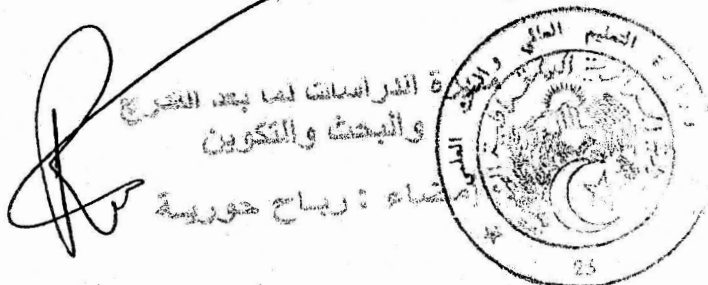 مديرة الدراسات لما بعد التدرج
والبحث والتكوين
إمضاء : رباح حورية
وزارة التعليم العالي والبحث العلمي
25